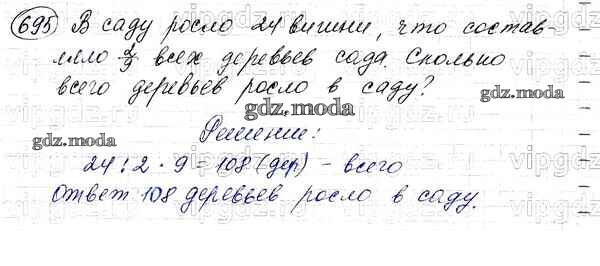 695 В саду росло 24 вишни, что состав-
ляло 2/9 всех деревьев сада. Сколько
всего деревьев росло в саду?
gdz.moda gdz.moda gdz.moda
Решение:
24 : 2 · 9 = 108 (дер) - всего
ответ 108 деревьев росло в саду.